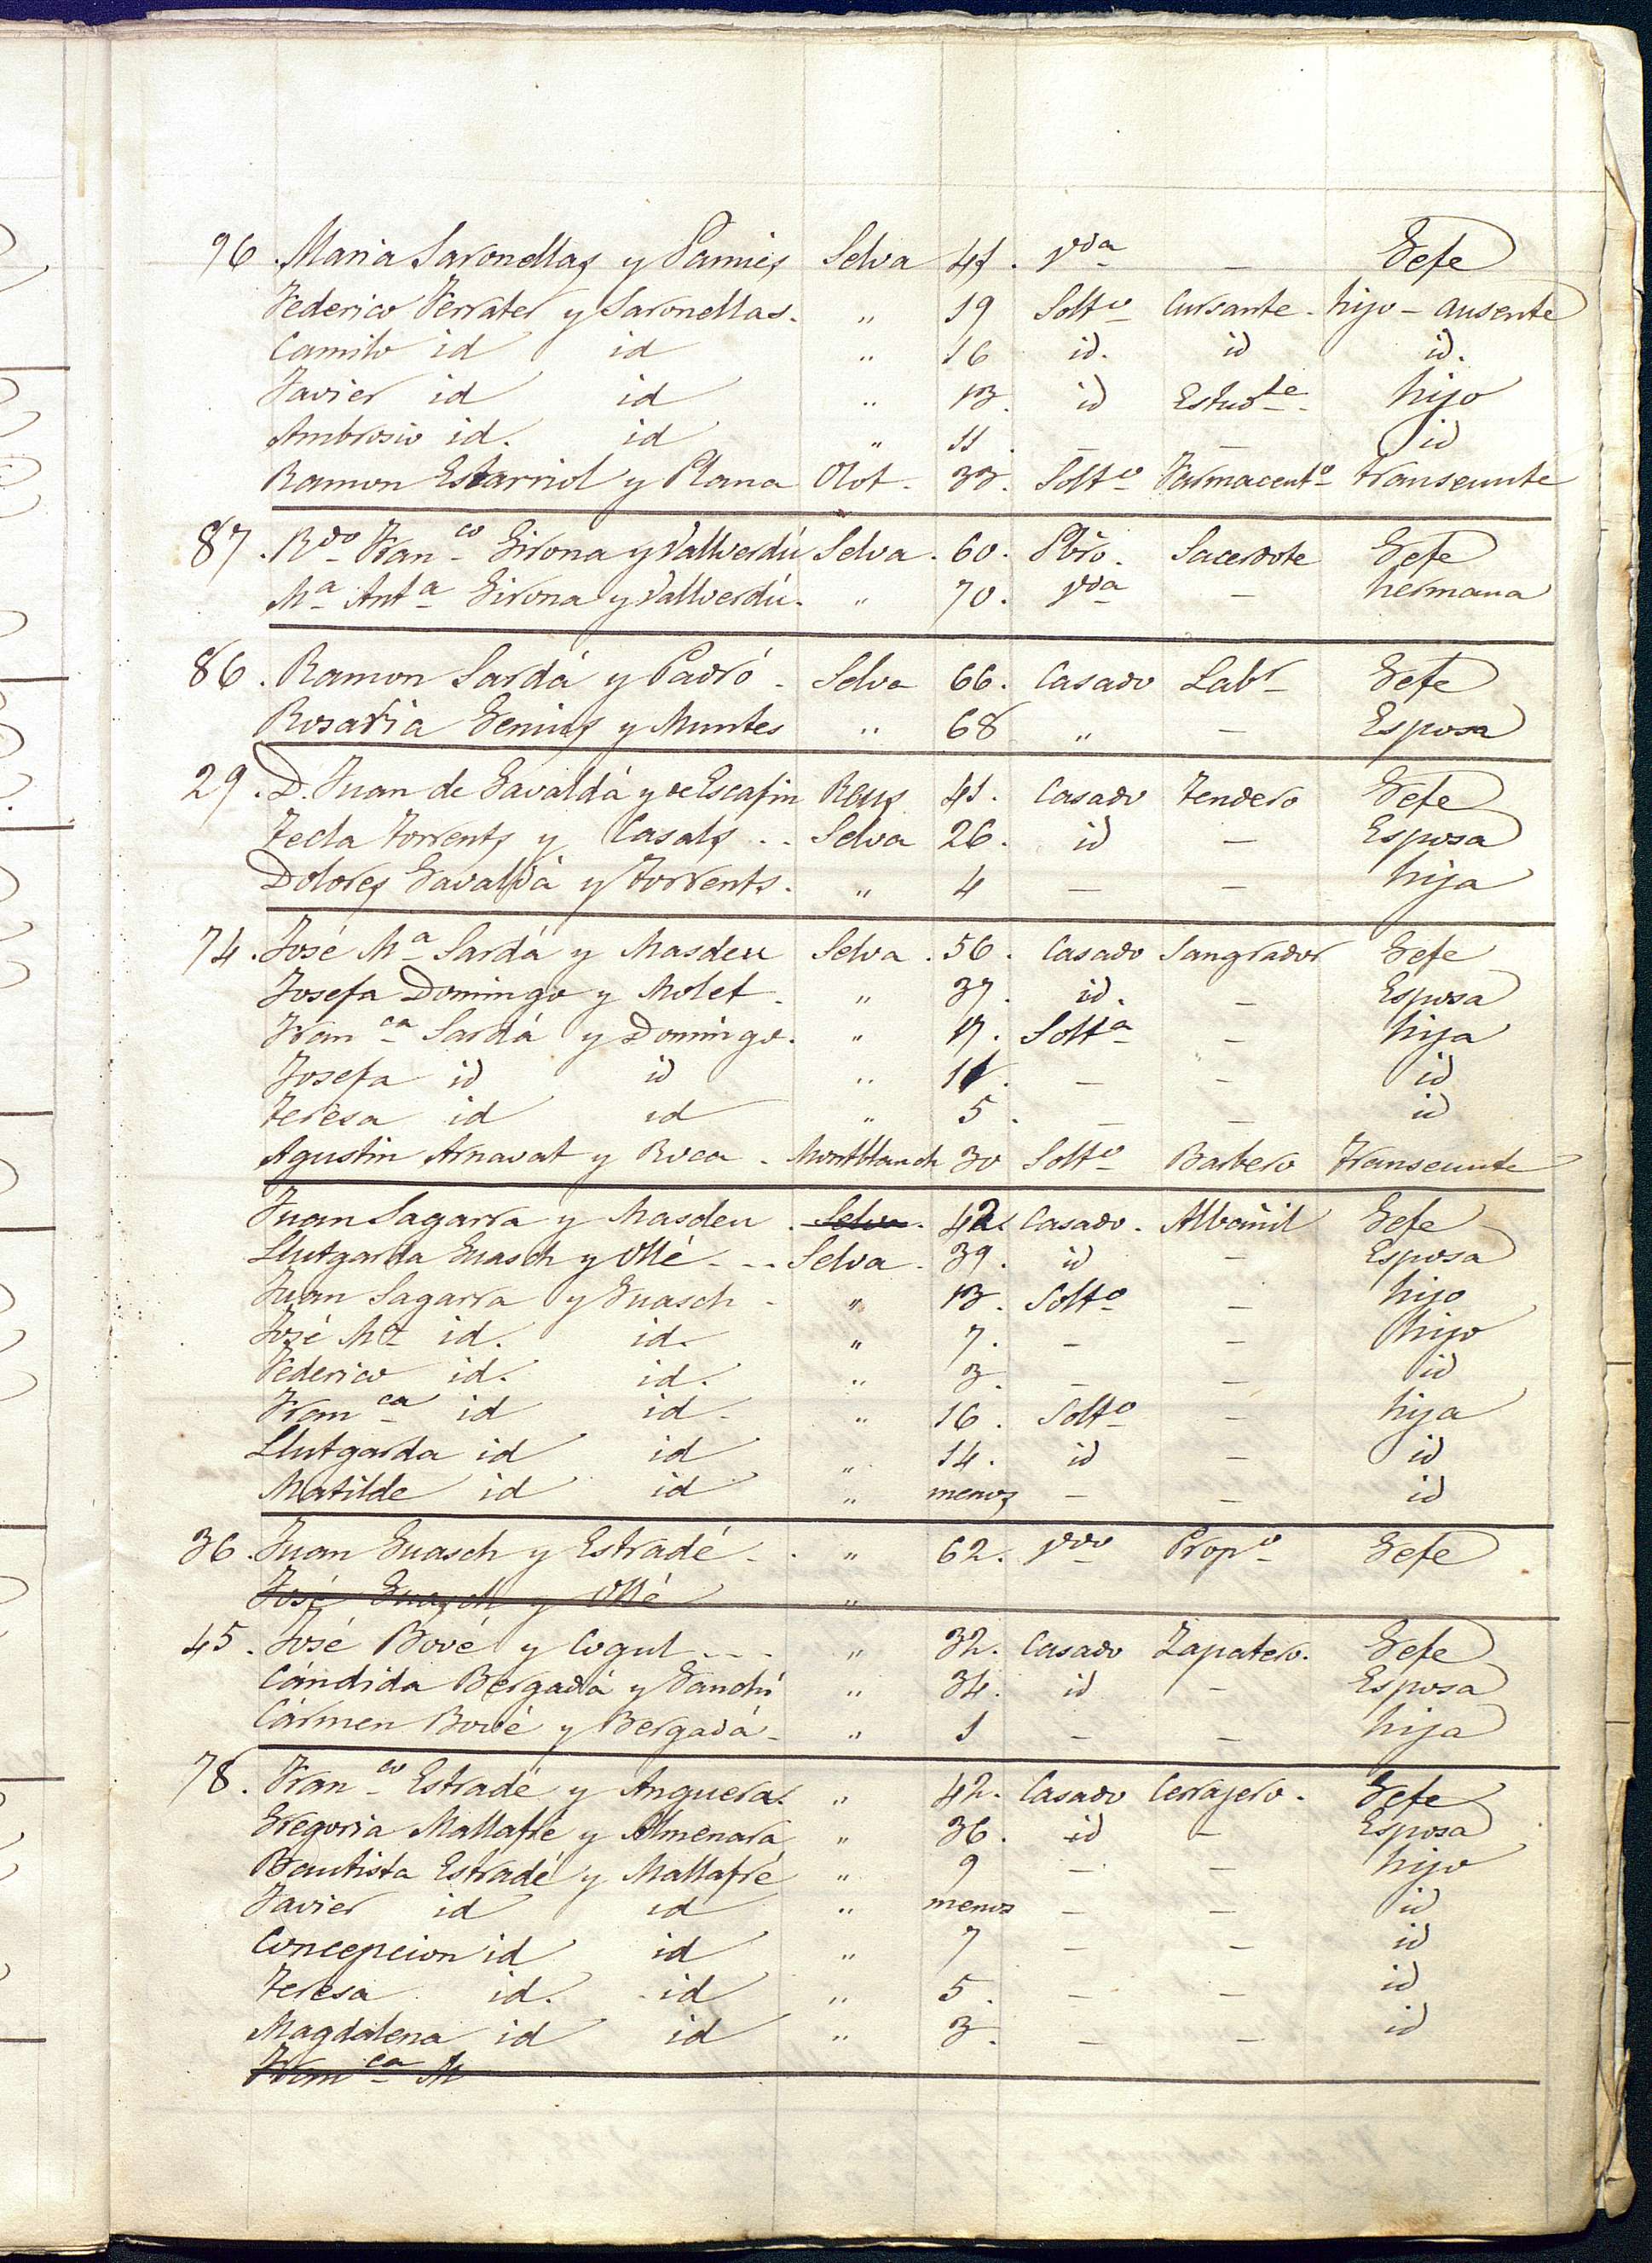 96. Maria Saronellas y Pamies Selva 41. Vda — Gefe
Federico Ferrater y Saronellas. " 19 Soltº Cursante. hijo - ausente
Camilo id id " 16 id. id id.
Javier id id " 13. id Estudte. hijo
Ambrosio id. id " 11. — — id
Ramon Estarriol y Plana Olot. 33. Soltº Farmaceutº transeunte
87. Rdo Franco Girona y Vallverdú Selva. 60. Pbro. Sacerdote Gefe
Mª Antª Girona y Vallverdú. " 70. Vda — hermana
86. Ramon Sardá y Padró. Selva 66. Casado Labr Gefe
Rosalia Gemius y Muntes " 68 " — Esposa
29. D. Juan de Gavaldá y de Escafin Reus 41. Casado Tendero Gefe
Tecla Torrents y Casals.. Selva 26. id — Esposa
Dolores Gavaldá y Torrents. " 4 — — hija
74. José Mª Sardá y Masdeu Selva. 56. Casado Sangrador Gefe
Josefa Domingo y Molet. " 37. id. — Esposa
Franca Sardá y Domingo. " 17. Soltª — hija
Josefa id id " 11. — — id
Teresa id id " 5. — — id
Agustin Arnavat y Roca. Montblanch 30 Soltº Barbero Transeunte
Juan Sagarra y Masdeu. Selva. 42. Casado. Albañil Gefe
Llutgarda Guasch y Ollé - - - Selva. 39. id — Esposa
Juan Sagarra y Guasch - " 13. Soltº — hijo
José Mª id. id. " 7. — — hijo
Federico id. id. " 3. — — id
Franca id id. " 16. Soltº — hija
Llutgarda id id " 14. id — id
Matilde id id " menos — — id
36. Juan Guasch y Estradé - . " 62. Vdo Propº Gefe
José Guasch y Ollé "
45. José Bové y Cogul - - - " 32. Casado Zapatero. Gefe
Cándida Bergadá y Ganchi " 34. id — Esposa
Cármen Bové y Bergadá - " 1 — — hija
78. Franco Estradé y Anguera. " 42. Casado Cerrajero. Gefe
Gregoria Mallafré y Almenara " 36. id — Esposa
Bautista Estradé y Mallafré " 9 — — hijo
Javier id id " menos — — id
Concepcion id id " 7 — — id
Teresa id. id " 5. — — id
Magdalena id id " 3. — — id
Franca M